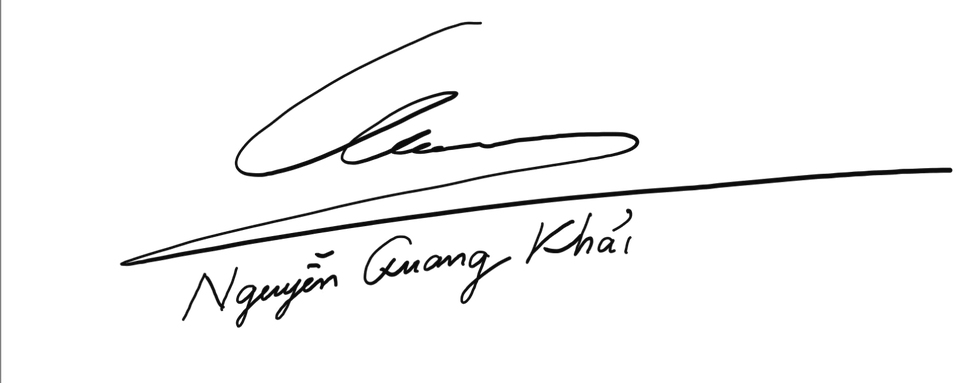 Nguyễn Quang Khải